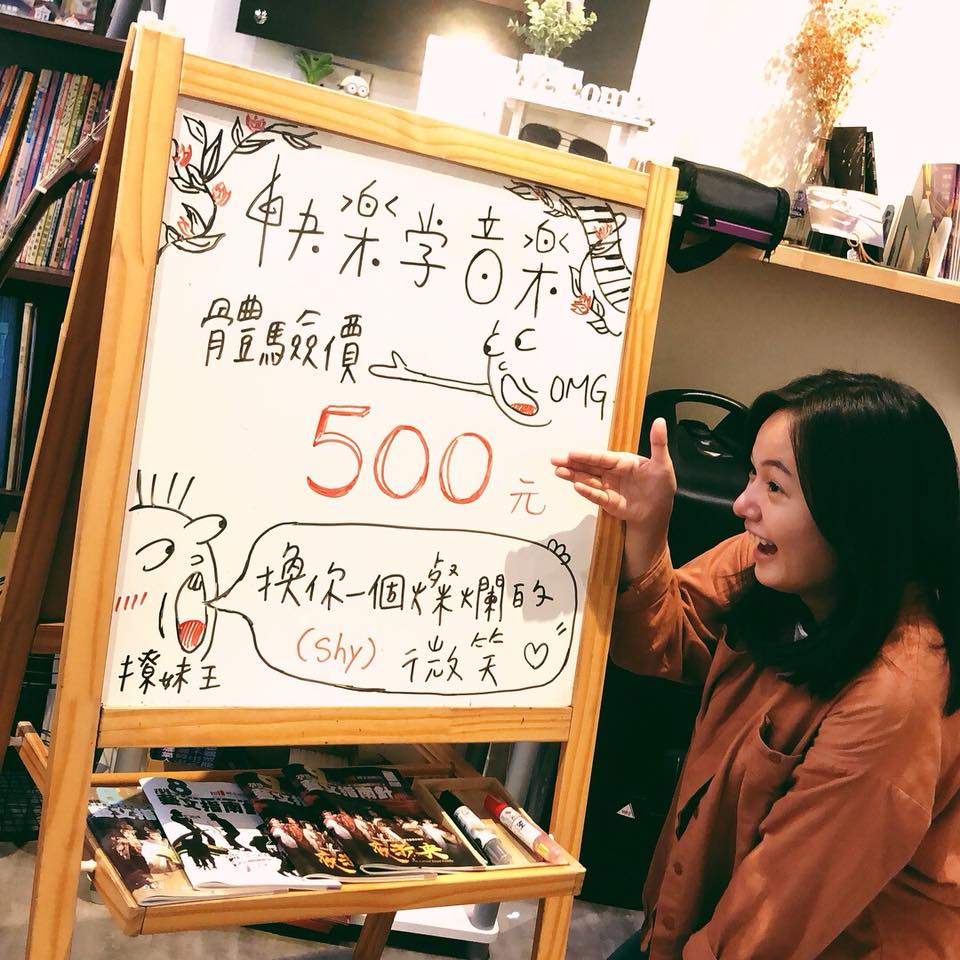 快樂学音樂
體驗價
OMG
500元
換你一個燦爛的
(Shy) 微笑
撩妹王